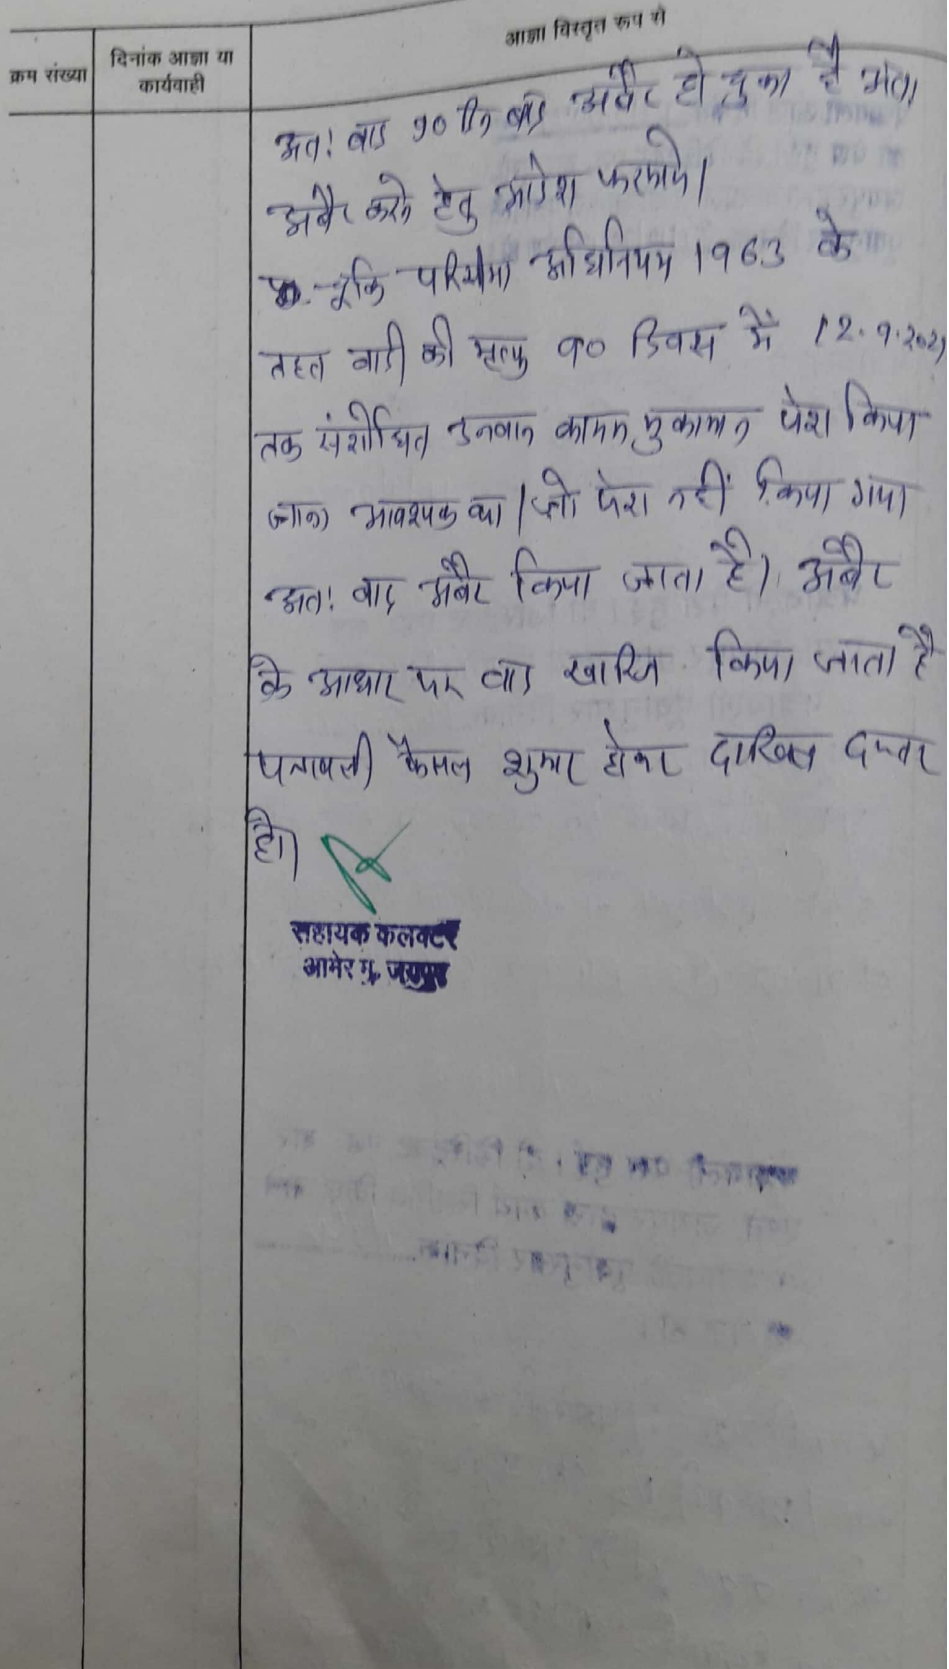 आज्ञा विस्तृत रूप से
क्रम संख्या
दिनांक आज्ञा या
कार्यवाही
अतः वाद 90 दिन बाद अबैट हो चुका है अतः
अबैट करने हेतु आदेश फरमावे।
चूंकि परिसीमा अधिनियम 1963 के
तहत वादी की मृत्यु 90 दिवस में 12.9.2021
तक संशोधित उनवान कायम मुकामान पेश किया
जाना आवश्यक था। जो पेश नहीं किया गया
अतः वाद अबैट किया जाता है। अबैट
के आधार पर वाद खारिज किया जाता है
पत्रावली फैसल शुमार होकर दाखिल दफ्तर
हो।
सहायक कलक्टर
आमेर मु. जयपुर